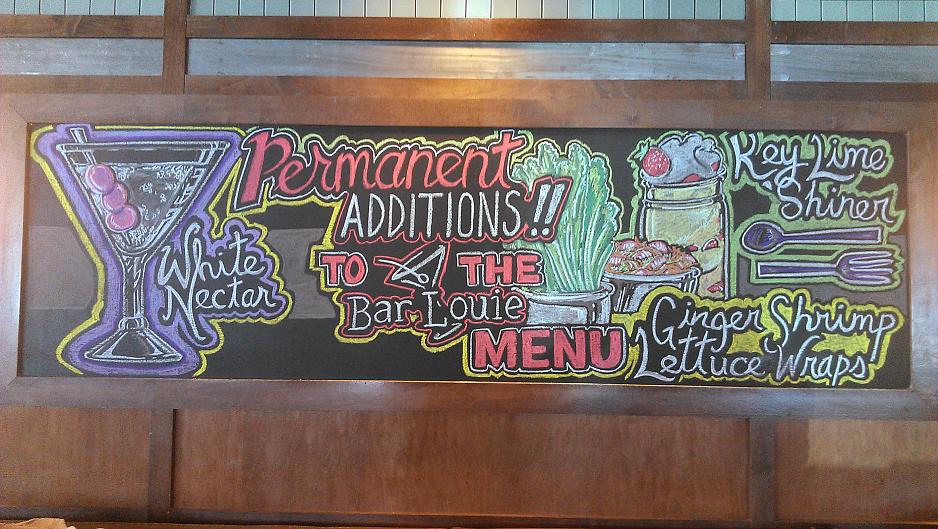 Permanent
ADDITIONS!!
TO THE
Bar Louie
MENU
White
Nectar
Key Lime
Shiner
Ginger Shrimp
Lettuce Wraps